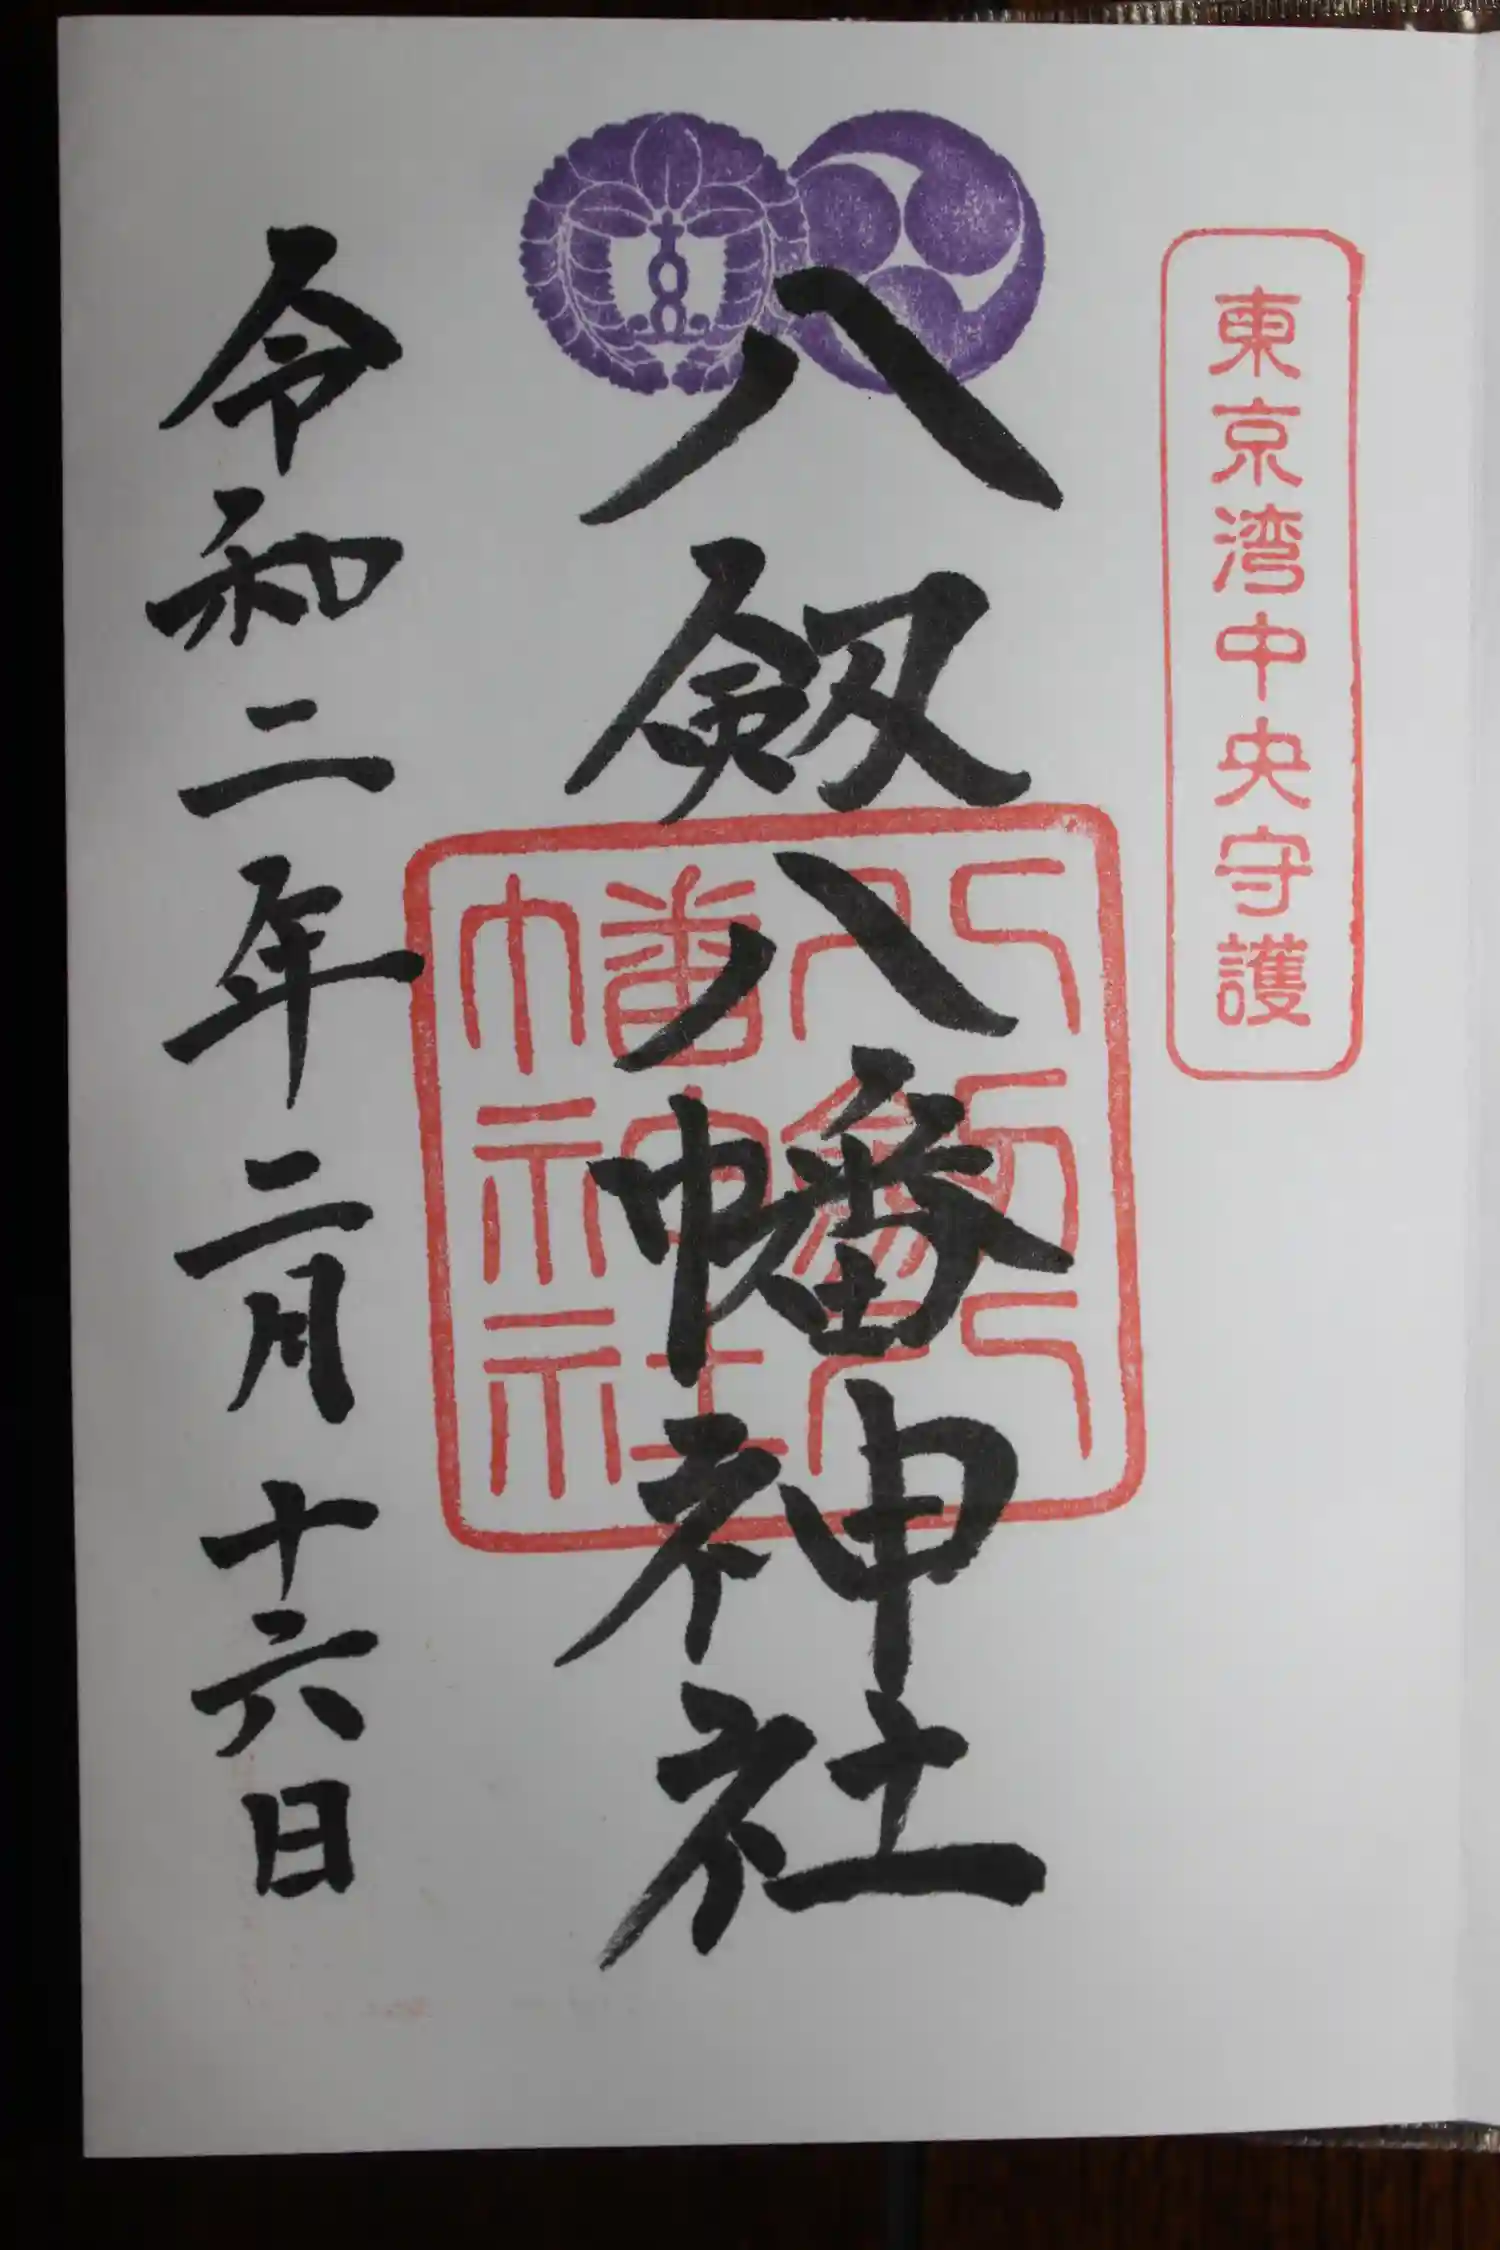 東京湾中央守護
八剱八幡神社
八剱八
幡神社
令和二年二月十六日